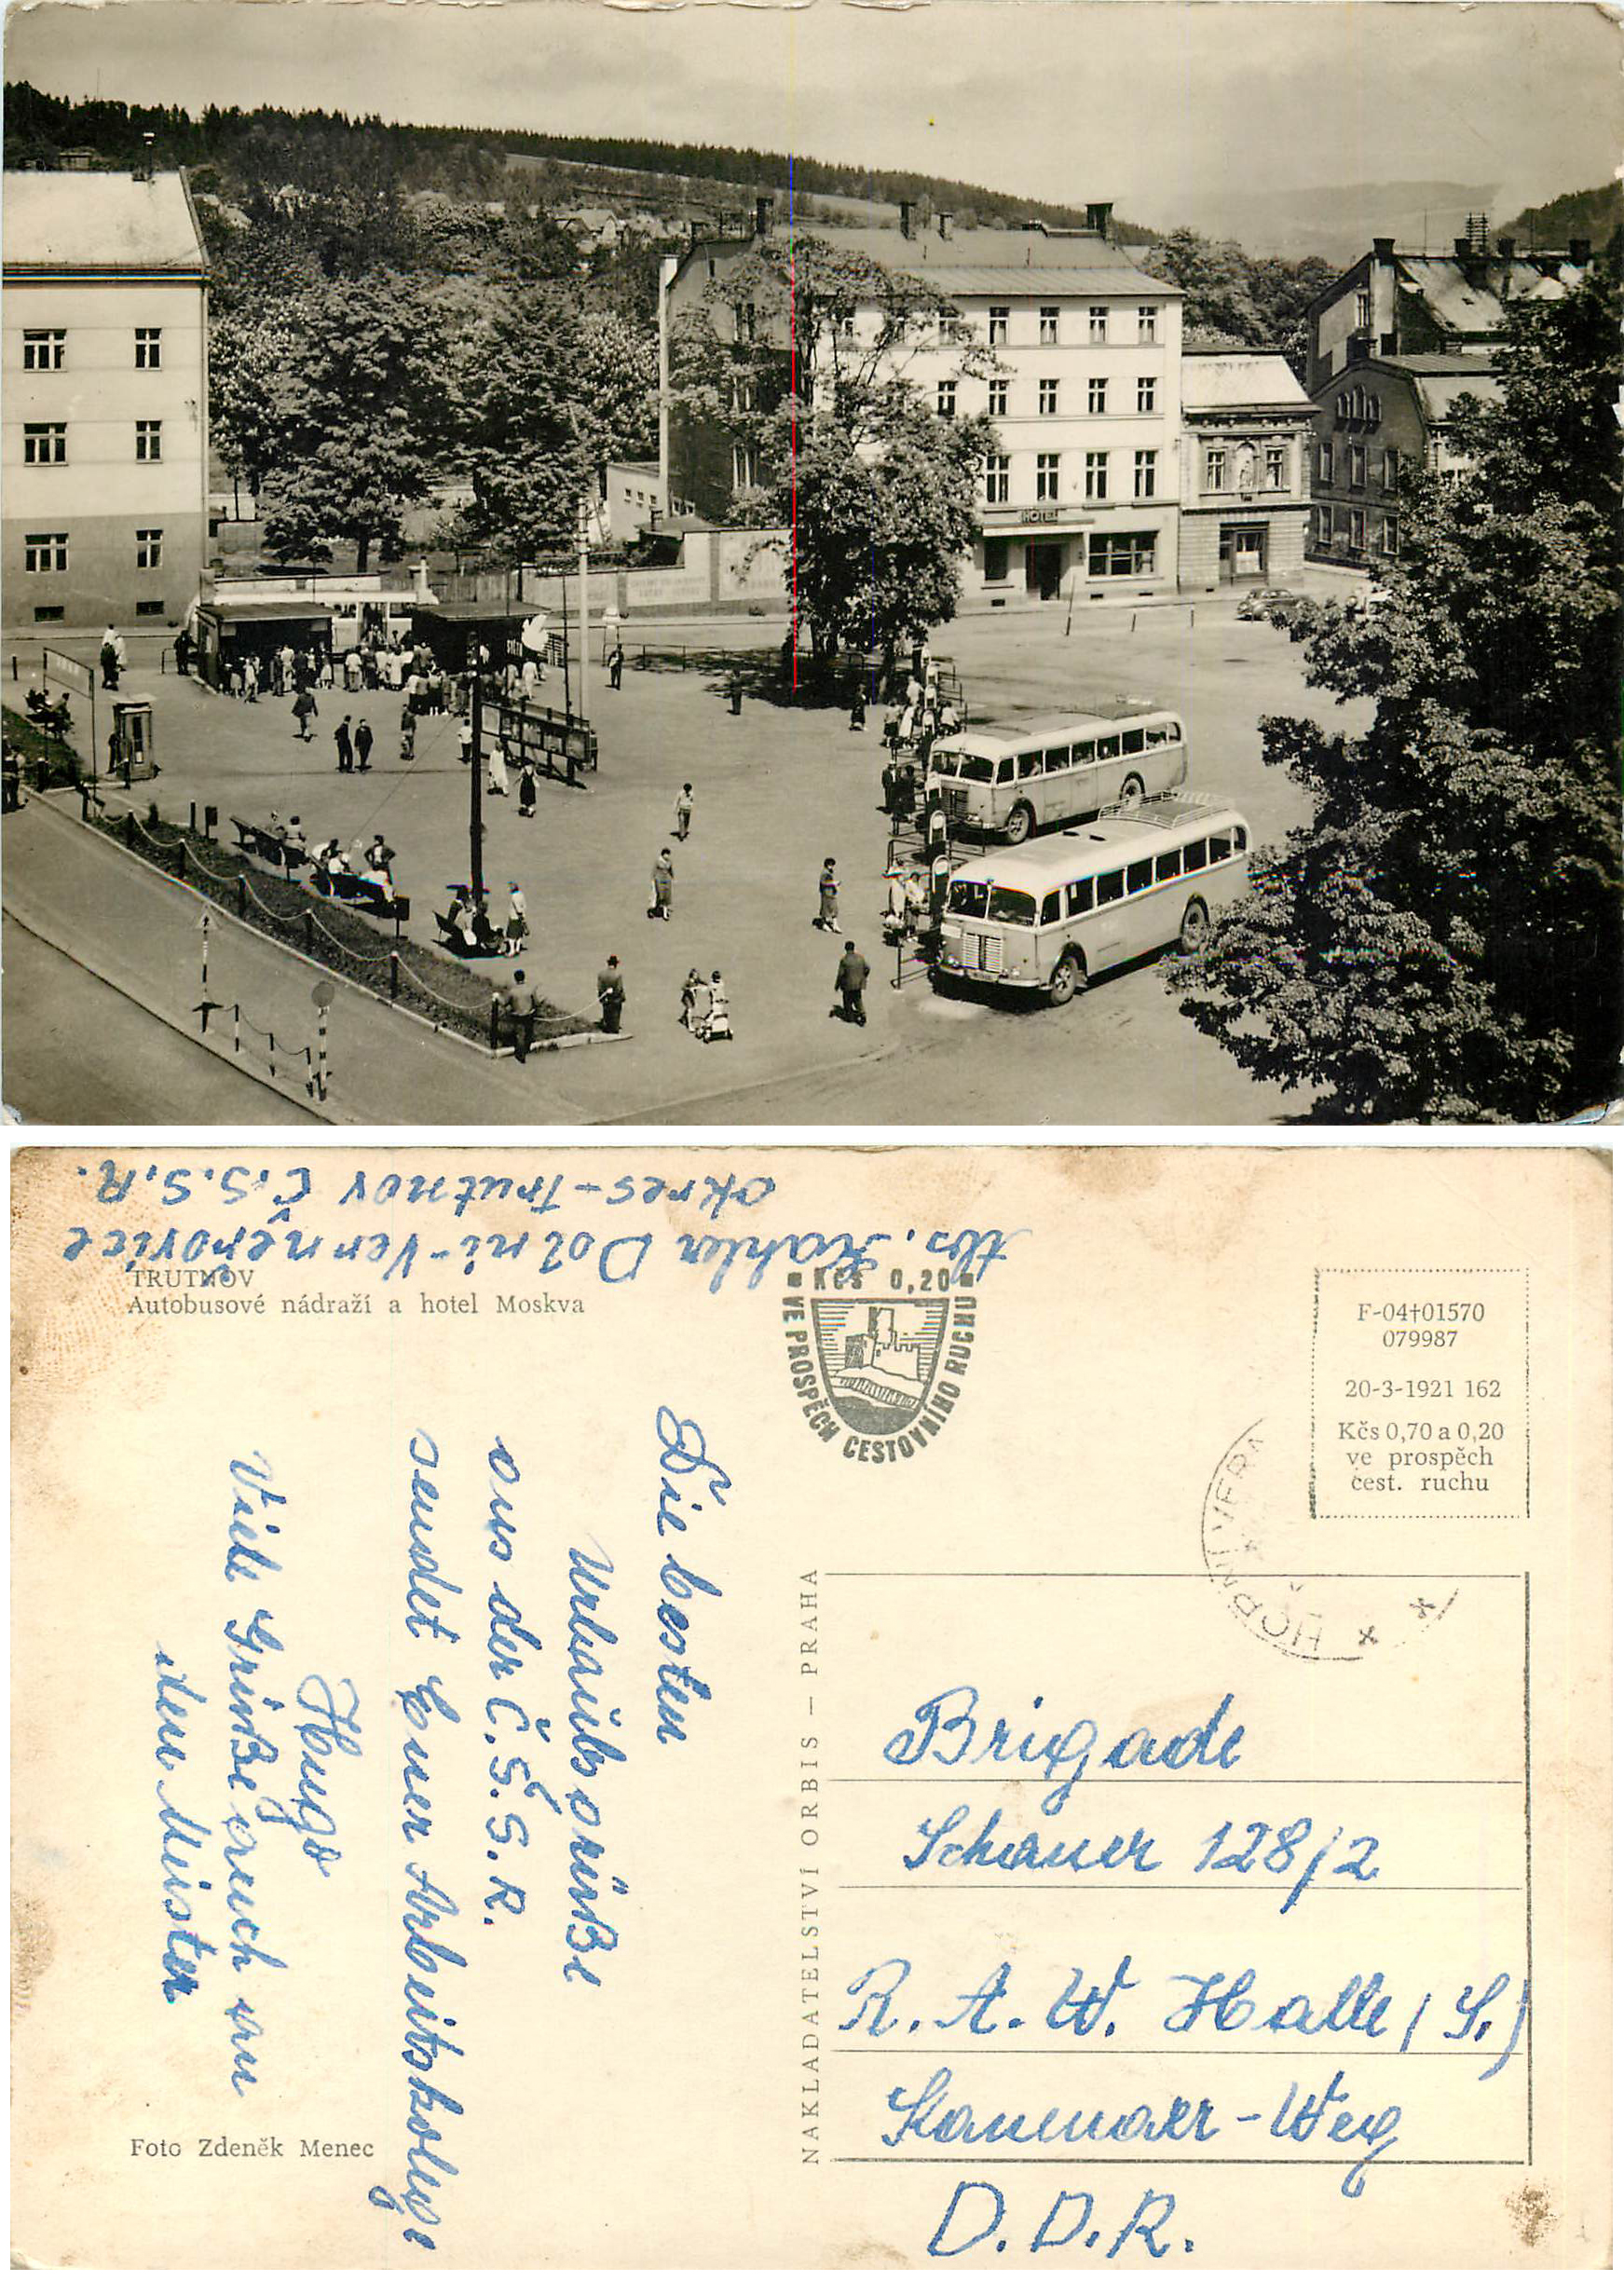 HOTEL
Abs. Kahler Dolni-Verněřovice
okres-Trutnov Č.S.S.R.
TRUTNOV
Autobusové nádraží a hotel Moskva
Kčs 0,20
VE PROSPĚCH CESTOVNÍHO RUCHU
F-04†01570
079987
20-3-1921 162
Kčs 0,70 a 0,20
ve prospěch
cest. ruchu
HORNÍ VERN
Die besten
Urlaubsgrüße
aus der Č.S.S.R.
sendet Euer Arbeitskollege
Hugo
Viele Grüße auch an
den Meister
NAKLADATELSTVÍ ORBIS — PRAHA
Brigade
Schauer 128/2
R.A.W. Halle (S.)
Weg
D.D.R.
Foto Zdeněk Menec